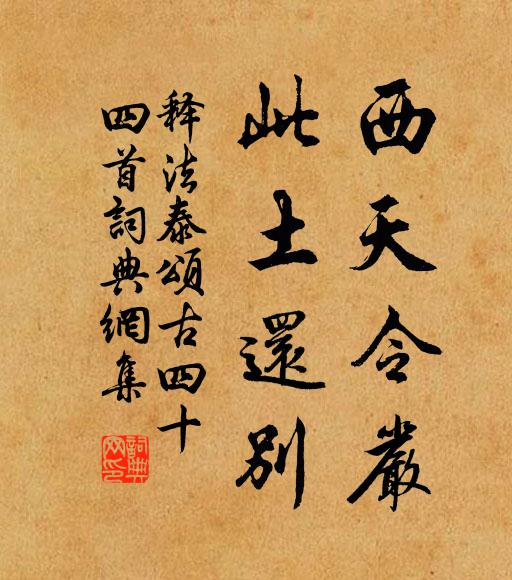 西天令嚴
此土還別
释法泰頌古四十
四首詞典網集
詞典
网印